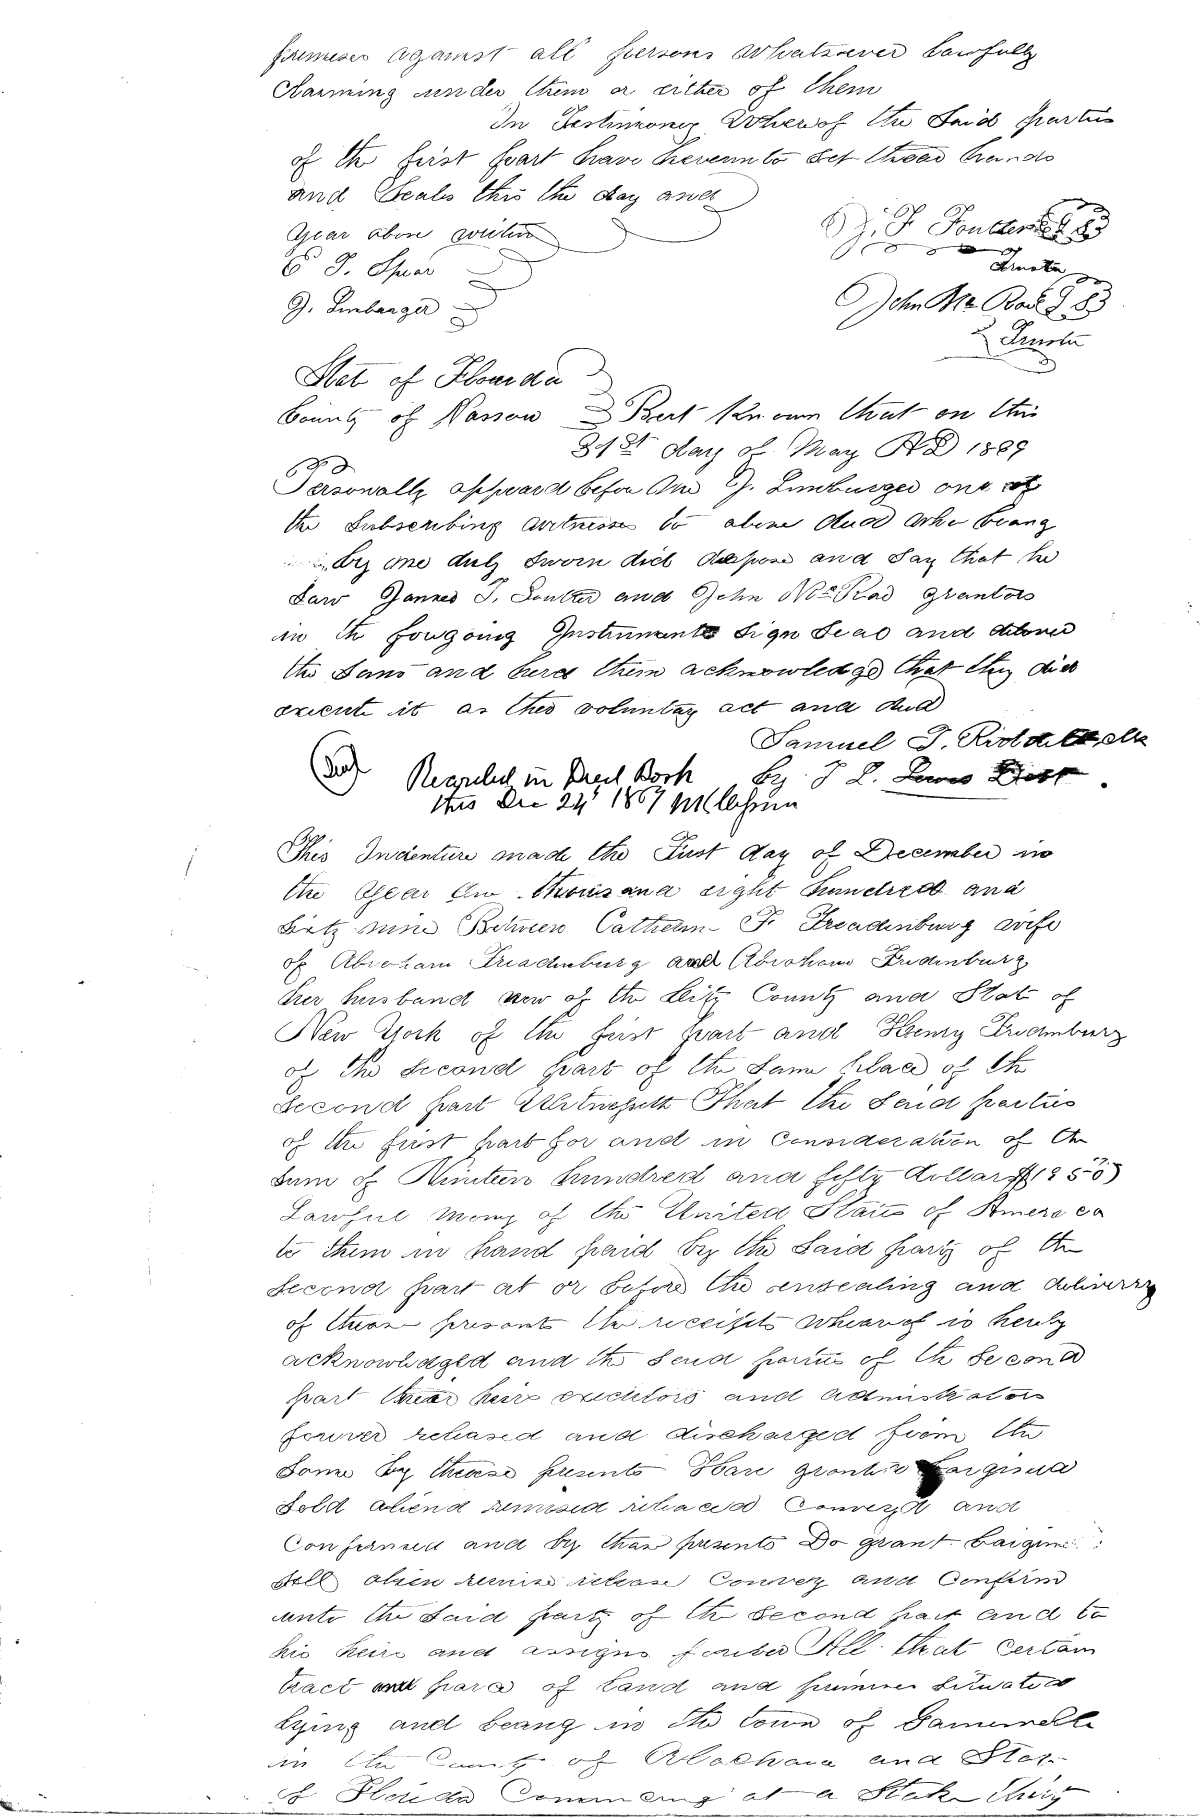 premises against all persons whatsoever lawfully
Claiming under them or either of them
In Testimony Wherof the Said parties
of the first part have hereunto set thear hands
and Seales this the day and
year above written
J. F. Soutter L.S.
Trustee
T. Spear
J. Limburger
John McRae L.S.
Trustee
Stat of Floarda
County of Nassau Beet Known that on this
31st day of May AD 1869
Personally appeard before me J. Limburger one of
the Subscribing witnesses to above deed who beang
by me duly sworn did depose and Say that he
Saw James T. Soutter and John McRae grantors
in th forgoing Instruments Sign Seal and deliver
the Same and herd them acknowledge that they did
execute it as ther voluntary act and deed
Samuel T. Riddell Clk
by T. L. Lewis Dept.
Recorded in Deed Book
this Dec 24 1869
This Indenture made the First day of December in
the year One thousand eight hundred and
Sixty nine Between Cathern F. Freadenburg wife
of Abraham Freadenburg and Abraham Fridenburg
her husband now of the City County and State of
New York of the first part and Henry Fridenburg
of the second part of the same place of th
second part Witnesseth That the said parties
of the first part for and in consideration of the
sum of Nineteen hundred and fifty dollars $(1950)
Lawful mony of the United States of America
to them in hand paid by the said party of the
second part at or before the ensealing and delivery
of these presents the receipts whearof is herby
acknowledged and the said parties of th second
part thear heirs executors and administrators
forever released and discharged from the
same by thease presents Have granted bargined
sold aliend remised released Conveyd and
Confirmed and by thease presents Do grant bargin
sell alien remise release Convey and Confirm
unto the said party of the second part and to
his heirs and assigns forever All that certain
tract and parcel of land and premises situated
lying and beang in the town of Gainesville
in the County of Alachua and State
of Florida Commencing at a Stake thirty